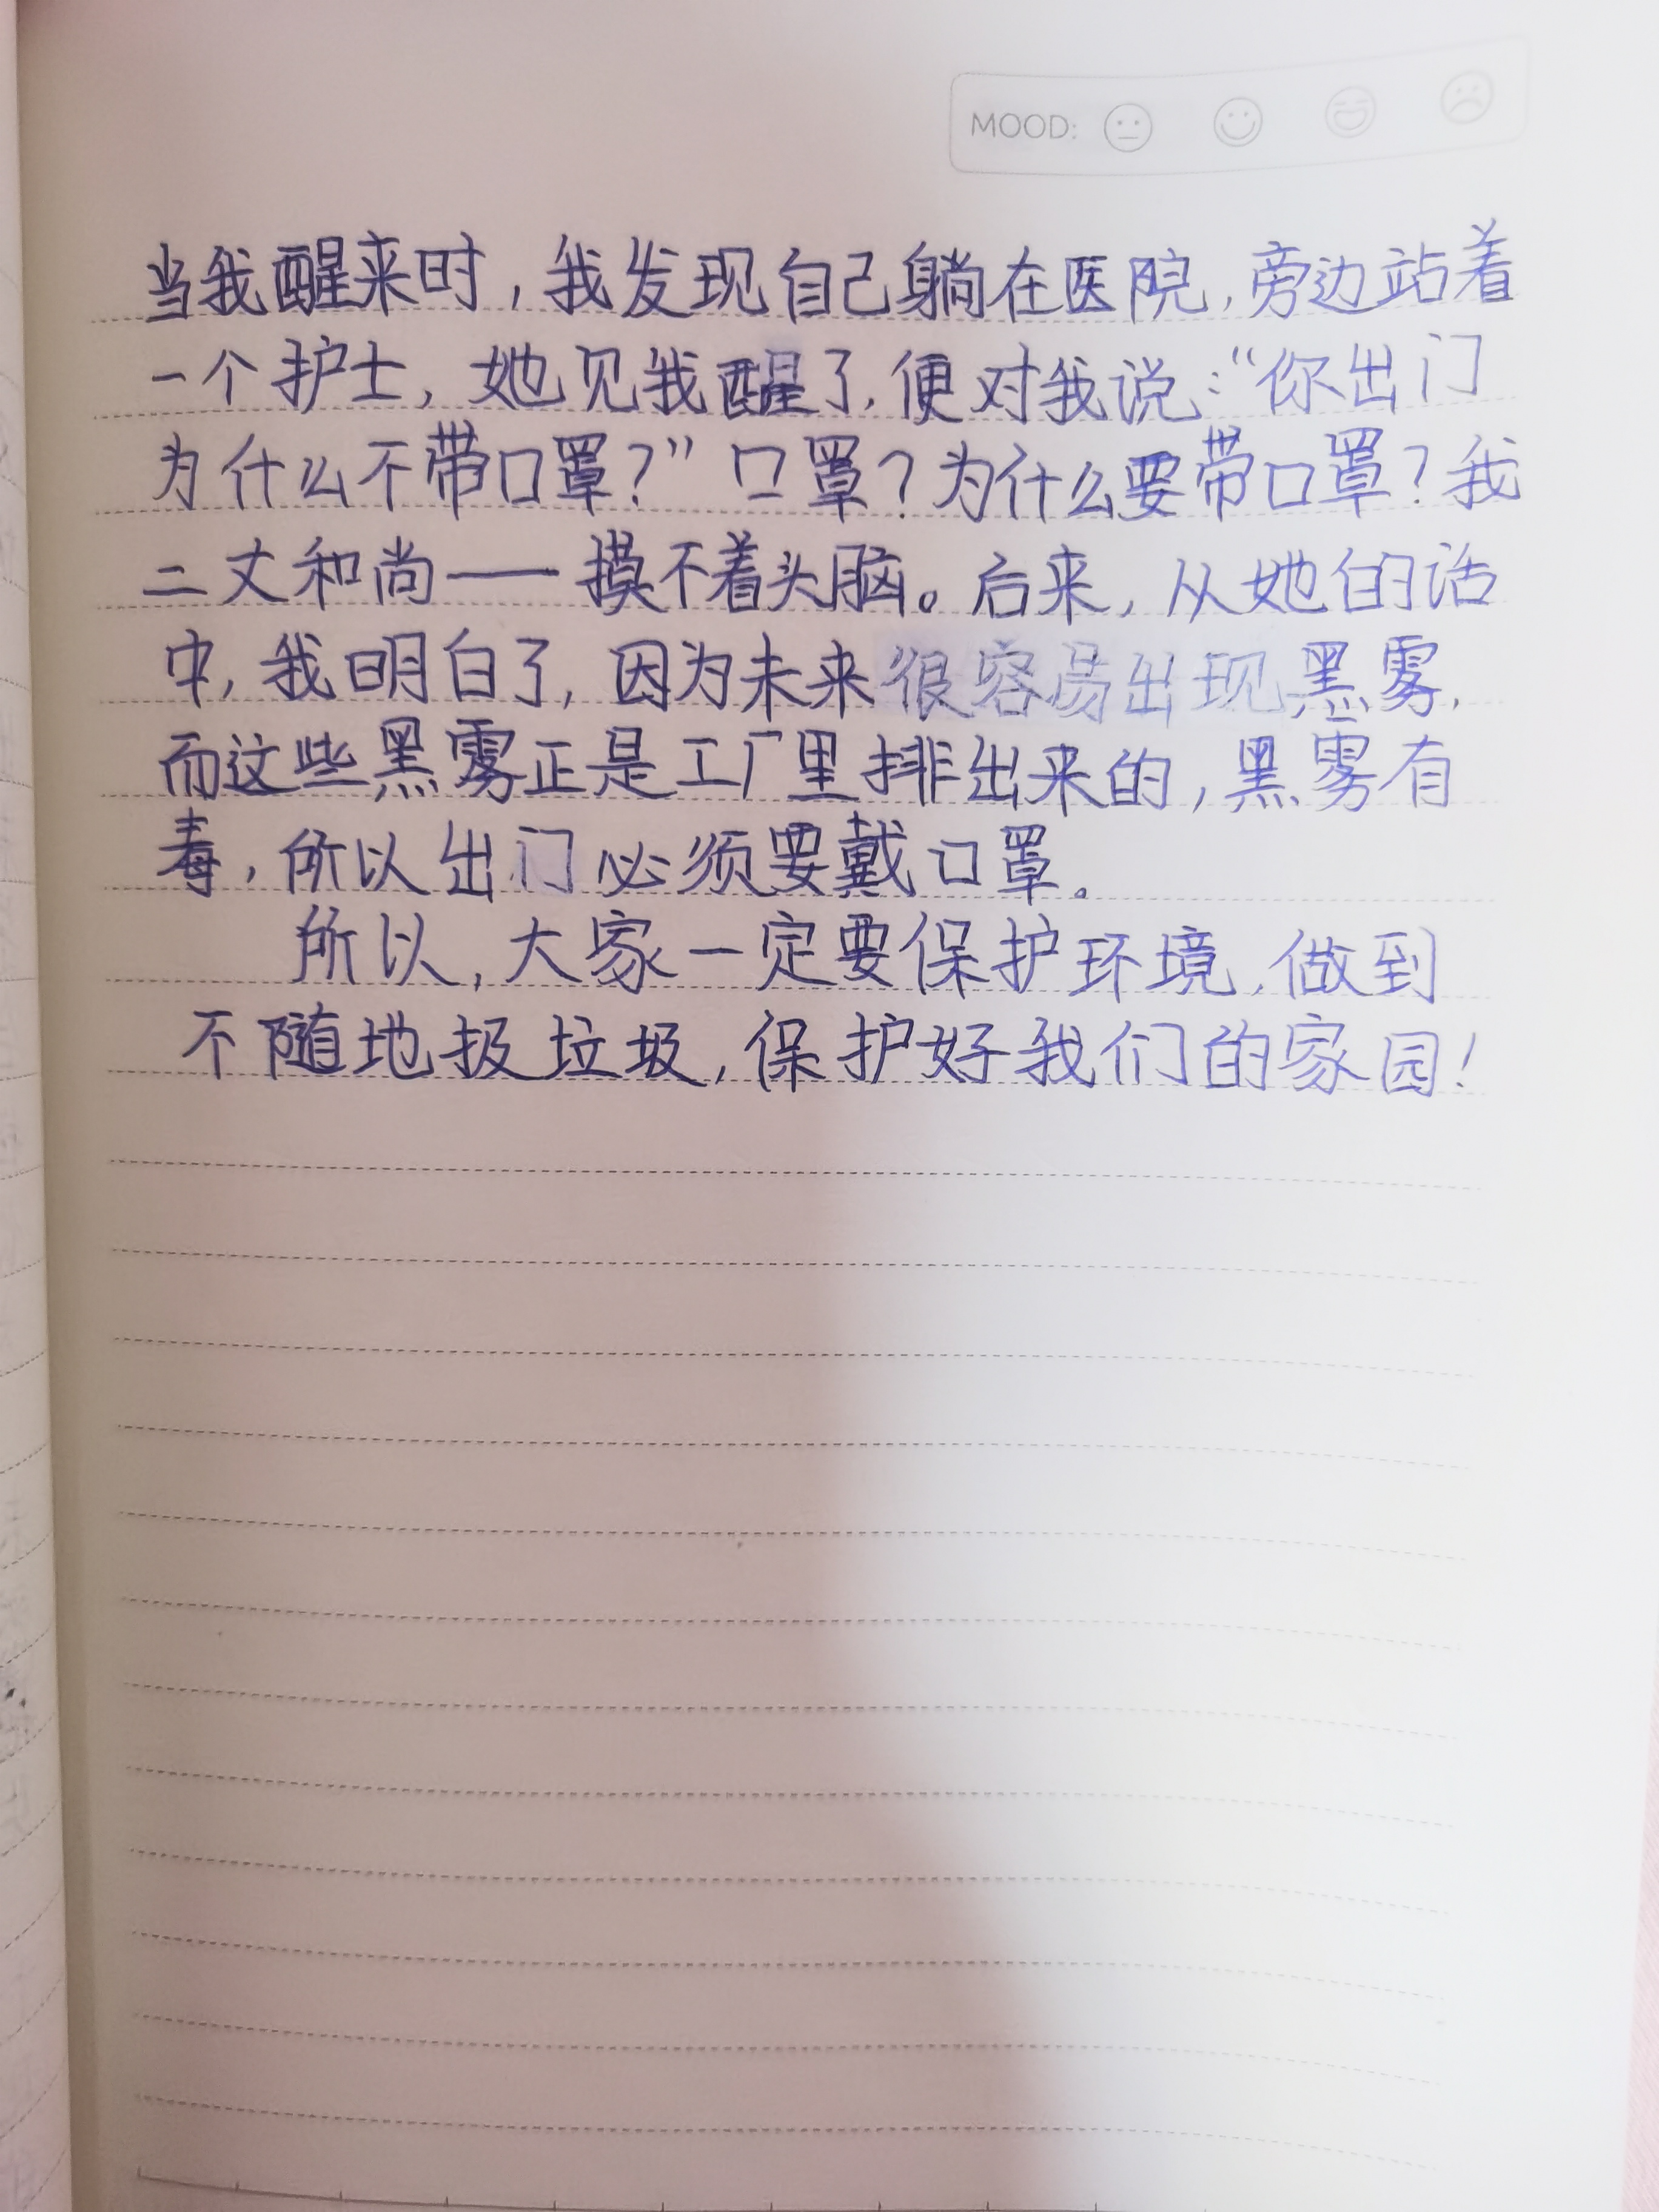 MOOD:
当我醒来时,我发现自己躺在医院,旁边站着
一个护士,她见我醒了,便对我说:“你出门
为什么不带口罩?”口罩?为什么要带口罩?我
二丈和尚——摸不着头脑。后来,从她的话
中,我明白了,因为未来很容易出现黑雾,
而这些黑雾正是工厂里排出来的,黑雾有
毒,所以出门必须要戴口罩。
所以,大家一定要保护环境,做到
不随地扱垃圾,保护好我们的家园!